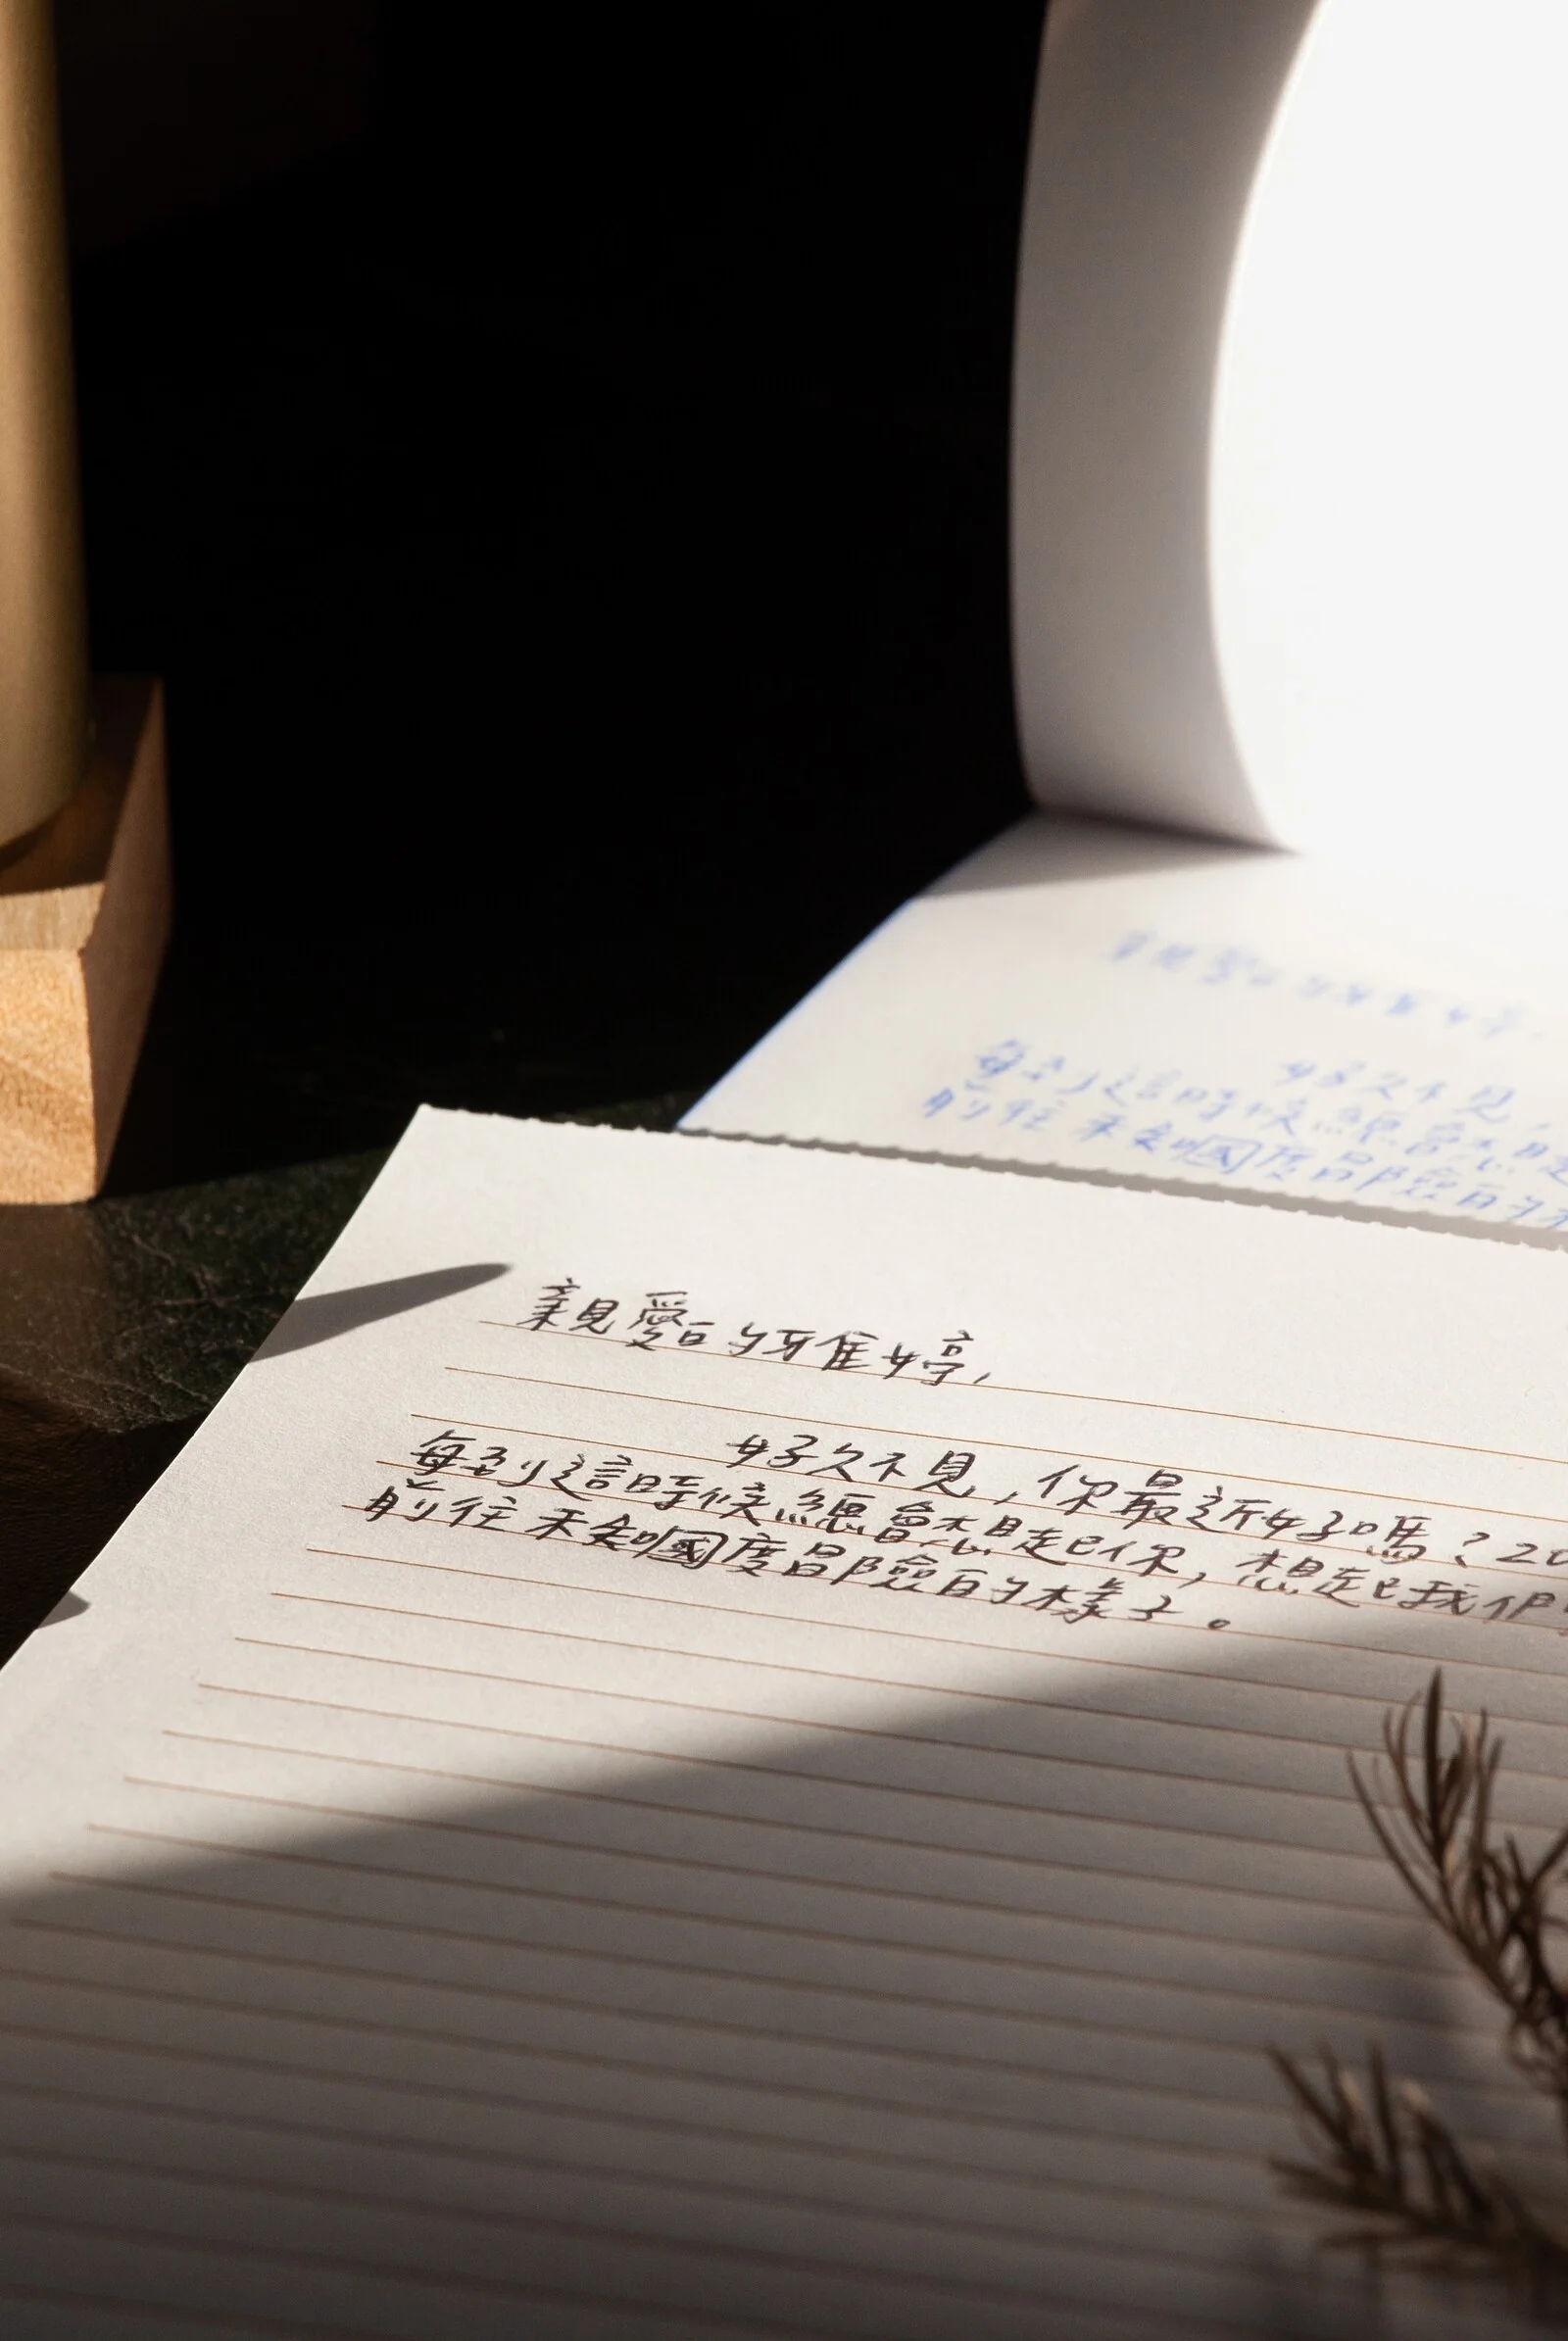 親愛的雅婷,
好久不見,你最近好嗎?20
每到這時候總會想起你,想起我們
前往未知國度冒險的樣子。
好久不見,
每到這時候總會想起
前往未知國度冒險的